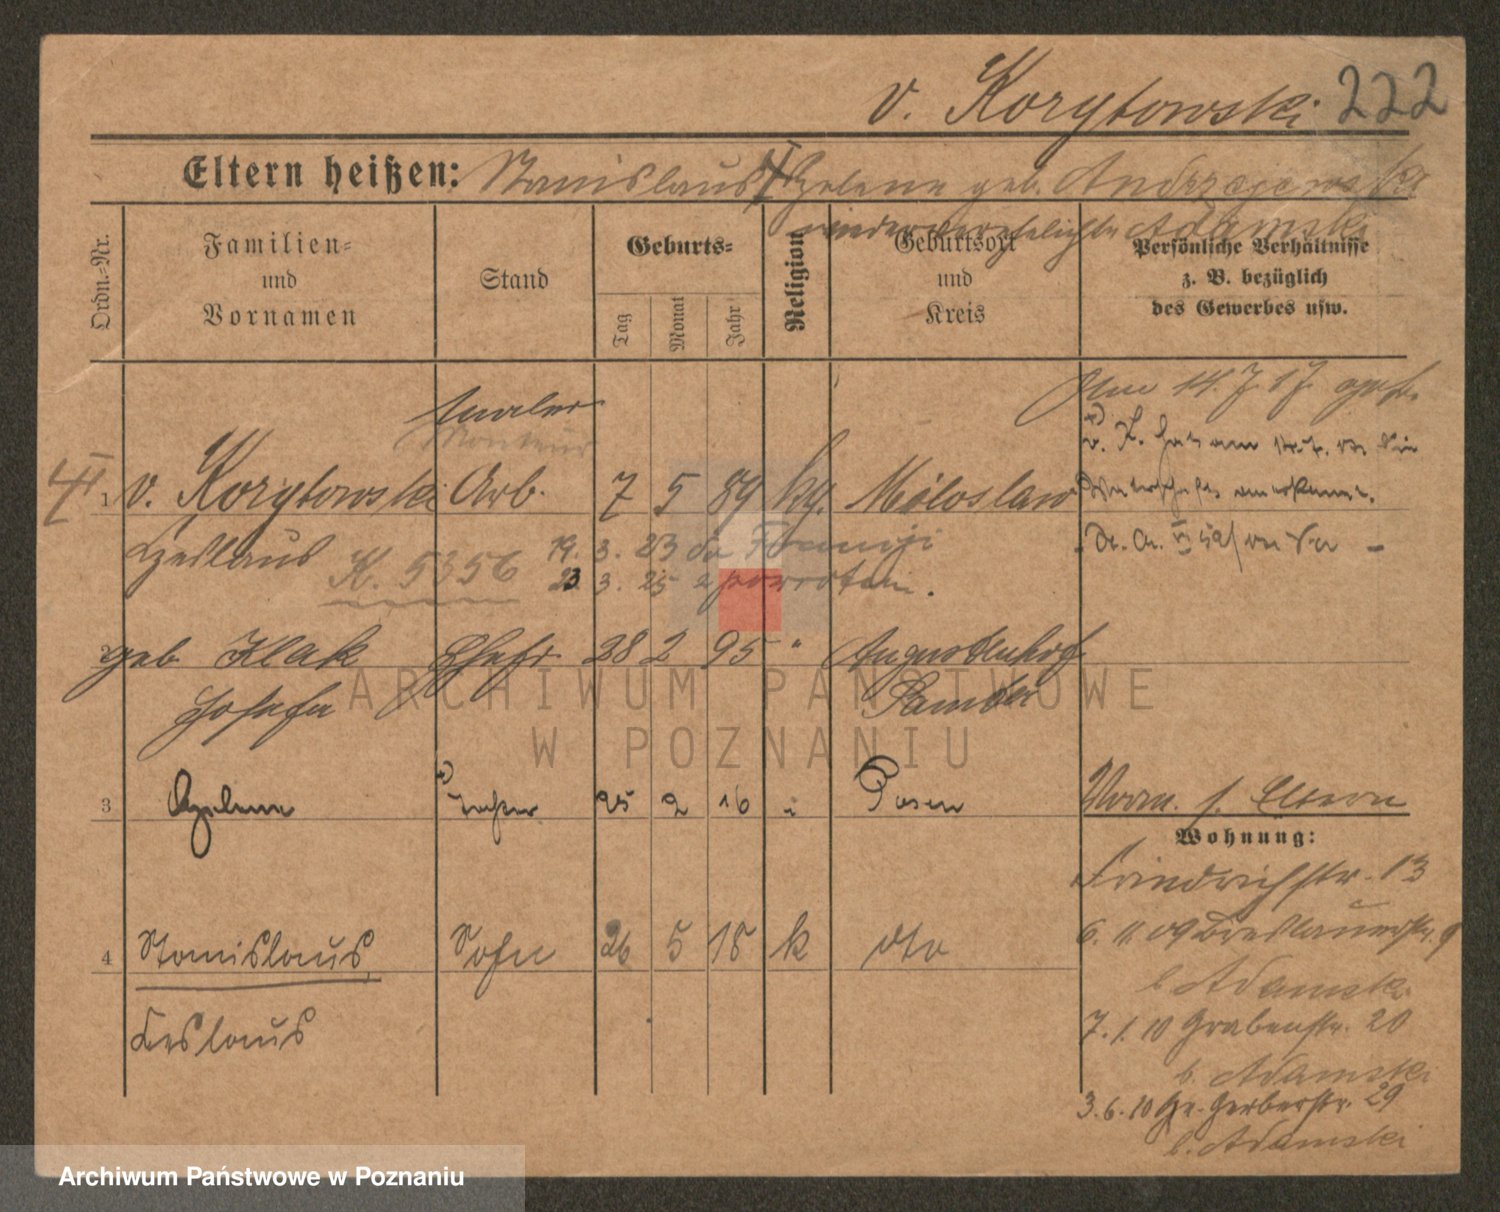 v. Korytowski 222
Eltern heißen: Stanislaus Helene geb. Andrzejewska
wiederverehelichte Adamski
Ordn.-Nr.
Familien-
und
Vornamen
Stand
Geburts-
Tag
Monat
Jahr
Religion
Geburtsort
und
Kreis
Persönliche Verhältnisse
z. B. bezüglich
des Gewerbes usw.
Maler
Monteur
1 v. Korytowski Arb. 7 5 89 kg. Miloslaw
v. K. hat am 14.7.
Zeslaus K. 5356 19. 3. 23 do Francji
23 3. 25 z powrotem.
2 geb Klak Ehefr. 28 2 95 " Augustenhof
Josefa Samter
3 Helene Tochter 25 2 16 " Posen
Vorm. s. Eltern
Wohnung:
Friedrichstr. 13
4 Stanislaus Sohn 26 5 18 k dto
6. 11. 09 Breslauerstr. 9
b Adamski
Zeslaus
7. 1. 10 Grabenstr. 20
b. Adamski
3. 6. 10 Gr. Gerberstr. 29
b. Adamski
ARCHIWUM PAŃSTWOWE
W POZNANIU
Archiwum Państwowe w Poznaniu